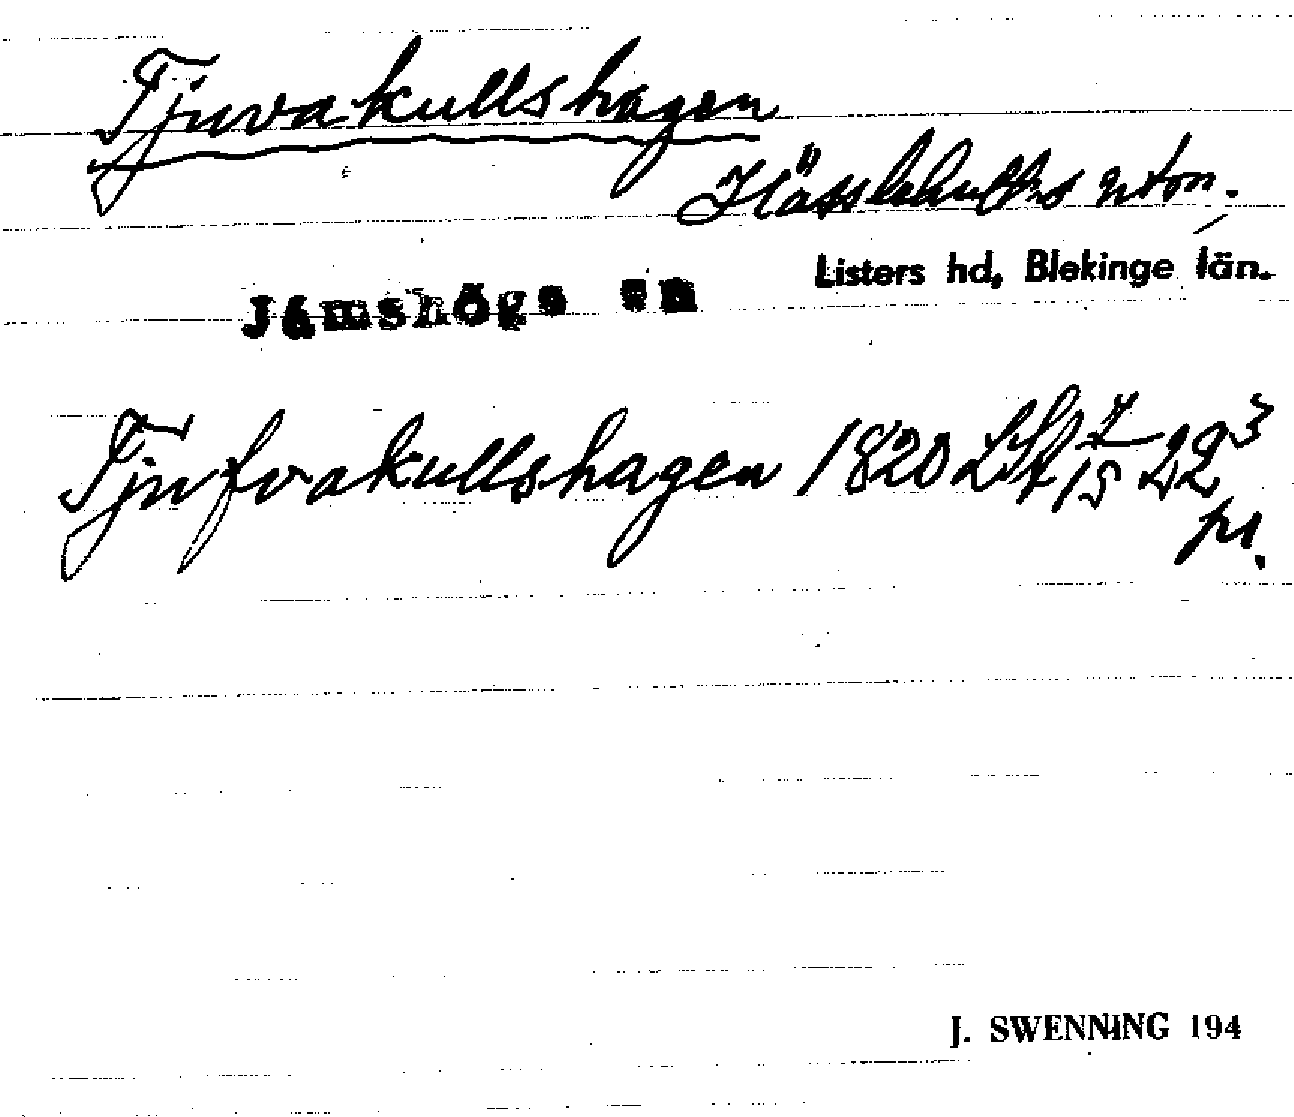 Tjuvakullshagen
Hässlehults utm.
Listers hd, Blekinge län.
Jämshögs sn
Tjufvakullshagen 1820 LSA 7/15 22³
J. SWENNING 194